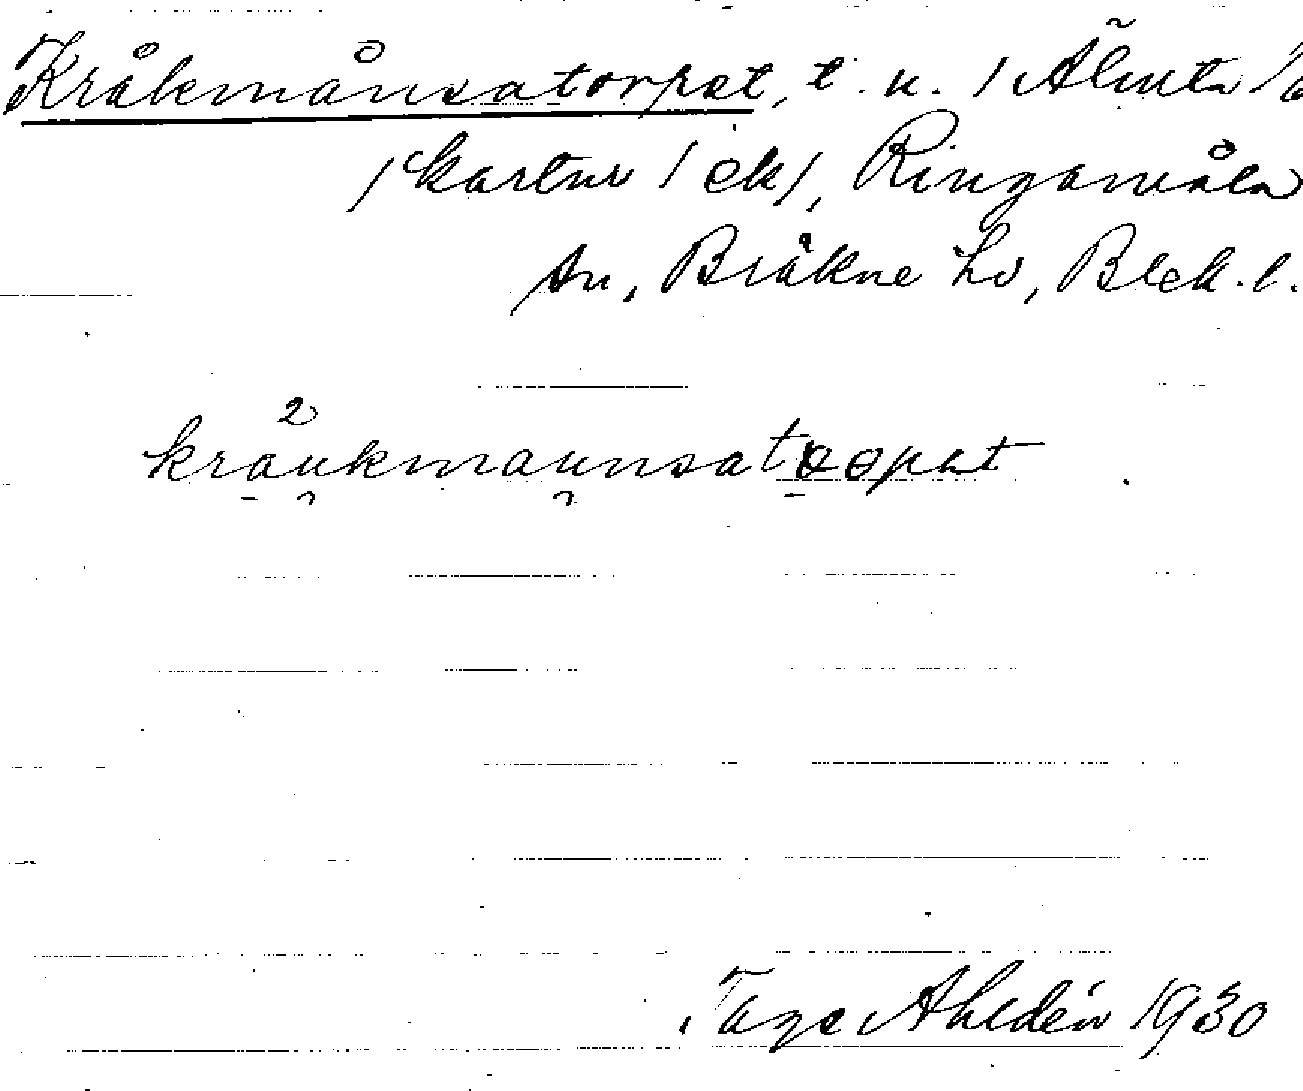 Kråkmånsatorpet, t. u. / Älmta 1/6
/ kartur / ek/, Ringamåla
sn, Bräkne hd, Blek. l.
kråukmaunsatoopat
Tage Ahldén 1930